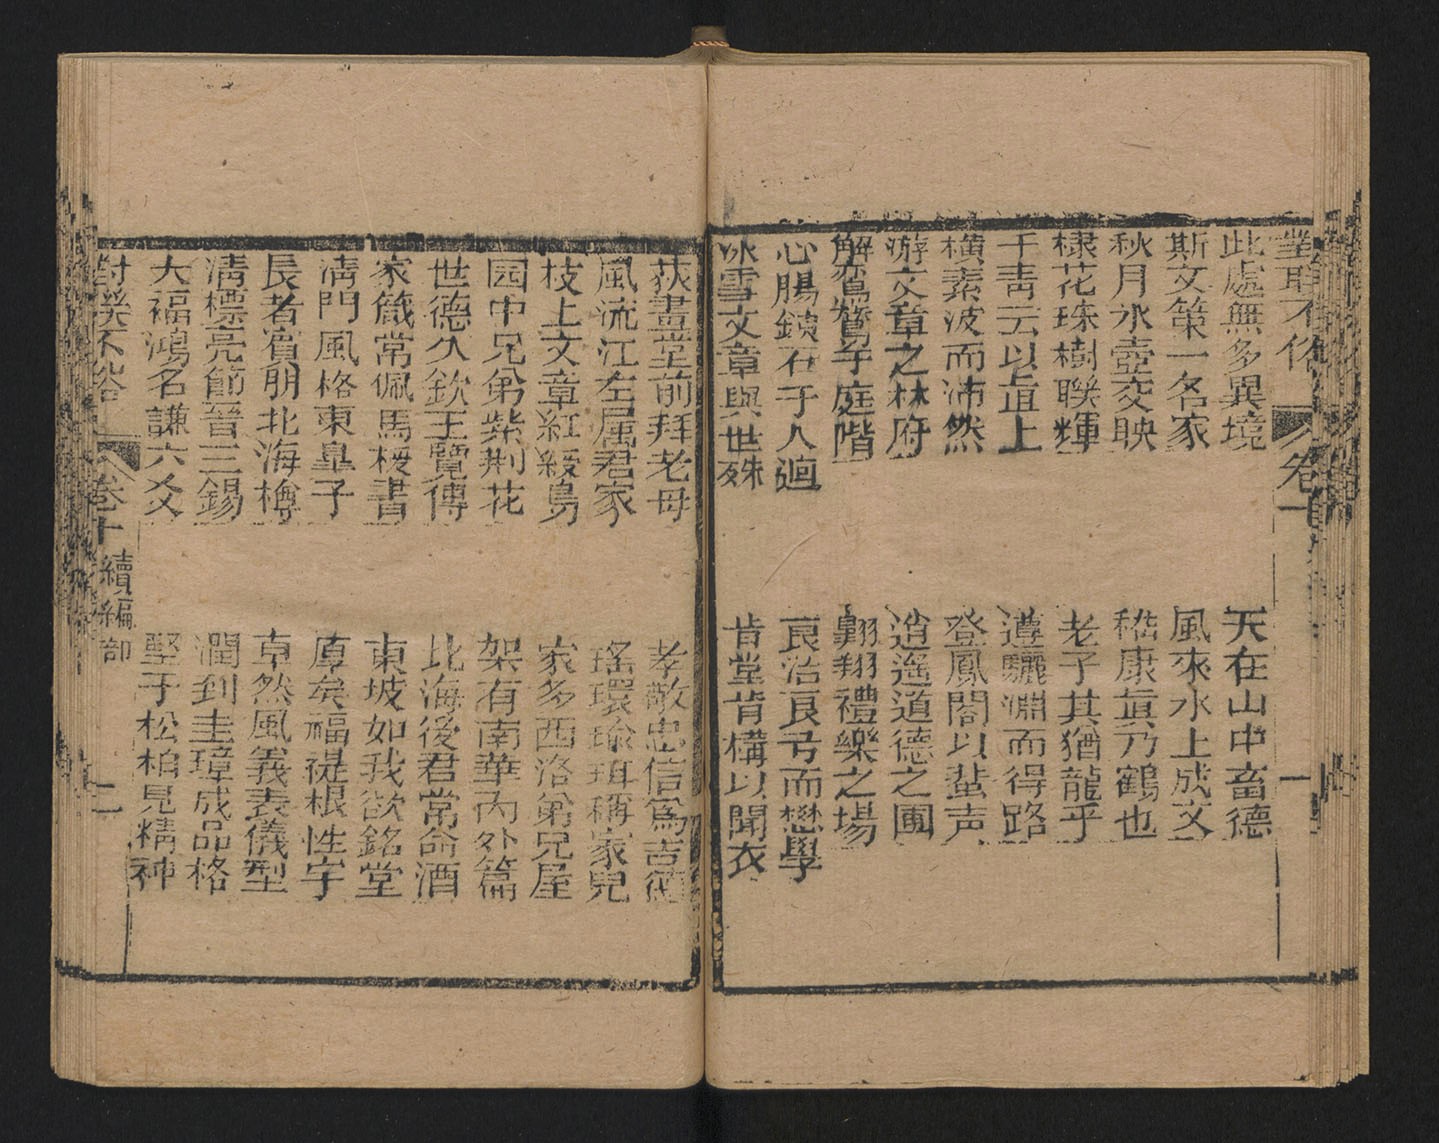 對聯不俗 卷十 一
此處無多異境 天在山中畜德
斯文第一名家 風來水上成文
秋月氷壺交映 嵇康眞乃鶴也
棣花珠樹聯輝 老子其猶龍乎
干青云以直上 遵驪淵而得路
橫素波而沛然 登鳳閣以蜚声
游文章之林府 逍遙道德之圃
觧鴛鷟于庭階 翱翔禮樂之場
心腸鐵石于人迥 良治良弓而懋學
冰雪文章與世殊 肯堂肯構以聞衣
荻畫堂前拜老母 孝敬忠信爲吉德
風流江左属君家 瑤環瑜珥稱家兒
枝上文章紅綬鳥 家多西洛弟兄屋
园中兄弟紫荆花 架有南華內外篇
世德久欽王覽傳 北海後君常命酒
家箴常佩馬援書 東坡如我欲銘堂
淸門風格東皐子 厚矣福禔根性宇
長者賓朋北海樽 卓然風義表儀型
淸標亮節晉三錫 潤到圭璋成品格
大福鴻名謙六爻 堅于松柏見精神
對聯不俗 卷十 續編部 二